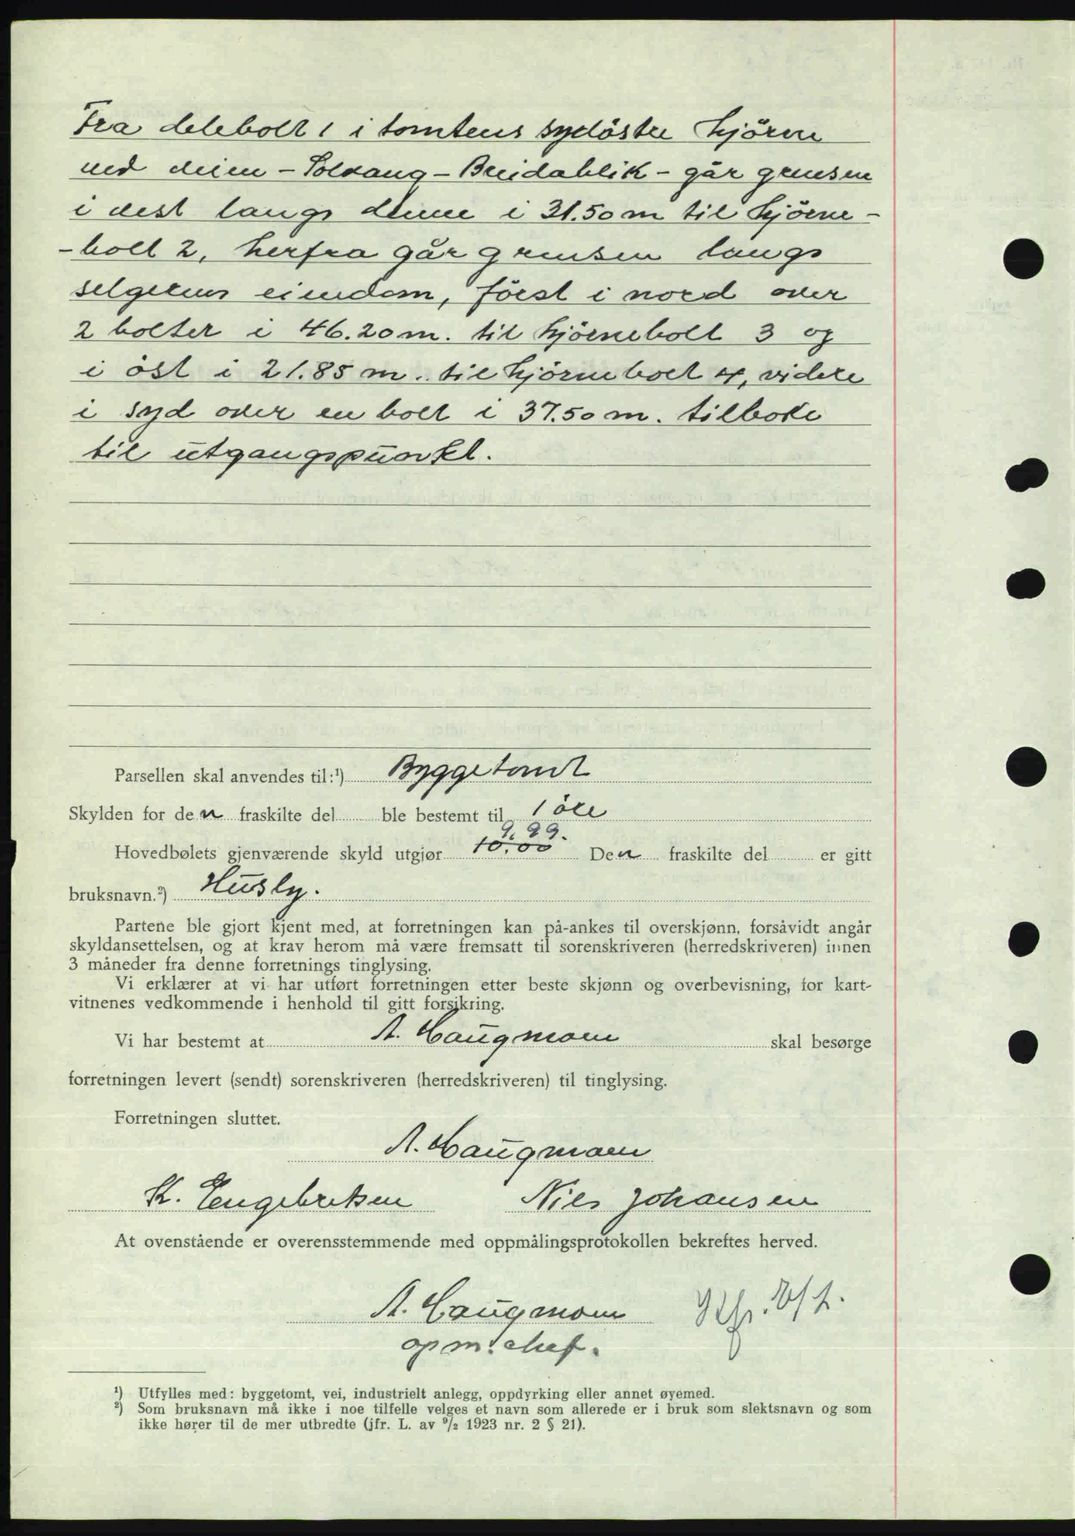 Fra delebolt 1 i tomtens sydöstre hjörne
ved veien - Solvang - Breidablik - går grensen
i vest langs denne i 31.50 m til hjörne-
-bolt 2, herfra går grensen langs
selgerens eiendom, först i nord over
2 bolter i 46.20 m. til hjörnebolt 3 og
i öst i 21.85 m. til hjörnebolt 4, videre
i syd over en bolt i 37.50 m. tilbake
til utgangspunkt.
Parsellen skal anvendes til:¹) Byggetomt
Skylden for den fraskilte del ble bestemt til 1 öre
9.99.
Hovedbølets gjenværende skyld utgjør 10.00 Den fraskilte del er gitt
bruksnavn.²) Husly.
Partene ble gjort kjent med, at forretningen kan på-ankes til overskjønn, forsåvidt angår
skyldansettelsen, og at krav herom må være fremsatt til sorenskriveren (herredskriveren) innen
3 måneder fra denne forretnings tinglysing.
Vi erklærer at vi har utført forretningen etter beste skjønn og overbevisning, for kart-
vitnenes vedkommende i henhold til gitt forsikring.
Vi har bestemt at A. Haugmoen skal besørge
forretningen levert (sendt) sorenskriveren (herredskriveren) til tinglysing.
Forretningen sluttet.
A. Haugmoen
K. Engebretsen Nils Johansen
At ovenstående er overensstemmende med oppmålingsprotokollen bekreftes herved.
A. Haugmoen
opm. chef.
¹) Utfylles med: byggetomt, vei, industrielt anlegg, oppdyrking eller annet øyemed.
²) Som bruksnavn må ikke i noe tilfelle velges et navn som allerede er i bruk som slektsnavn og som
ikke hører til de mer utbredte (jfr. L. av ⁹/₂ 1923 nr. 2 § 21).